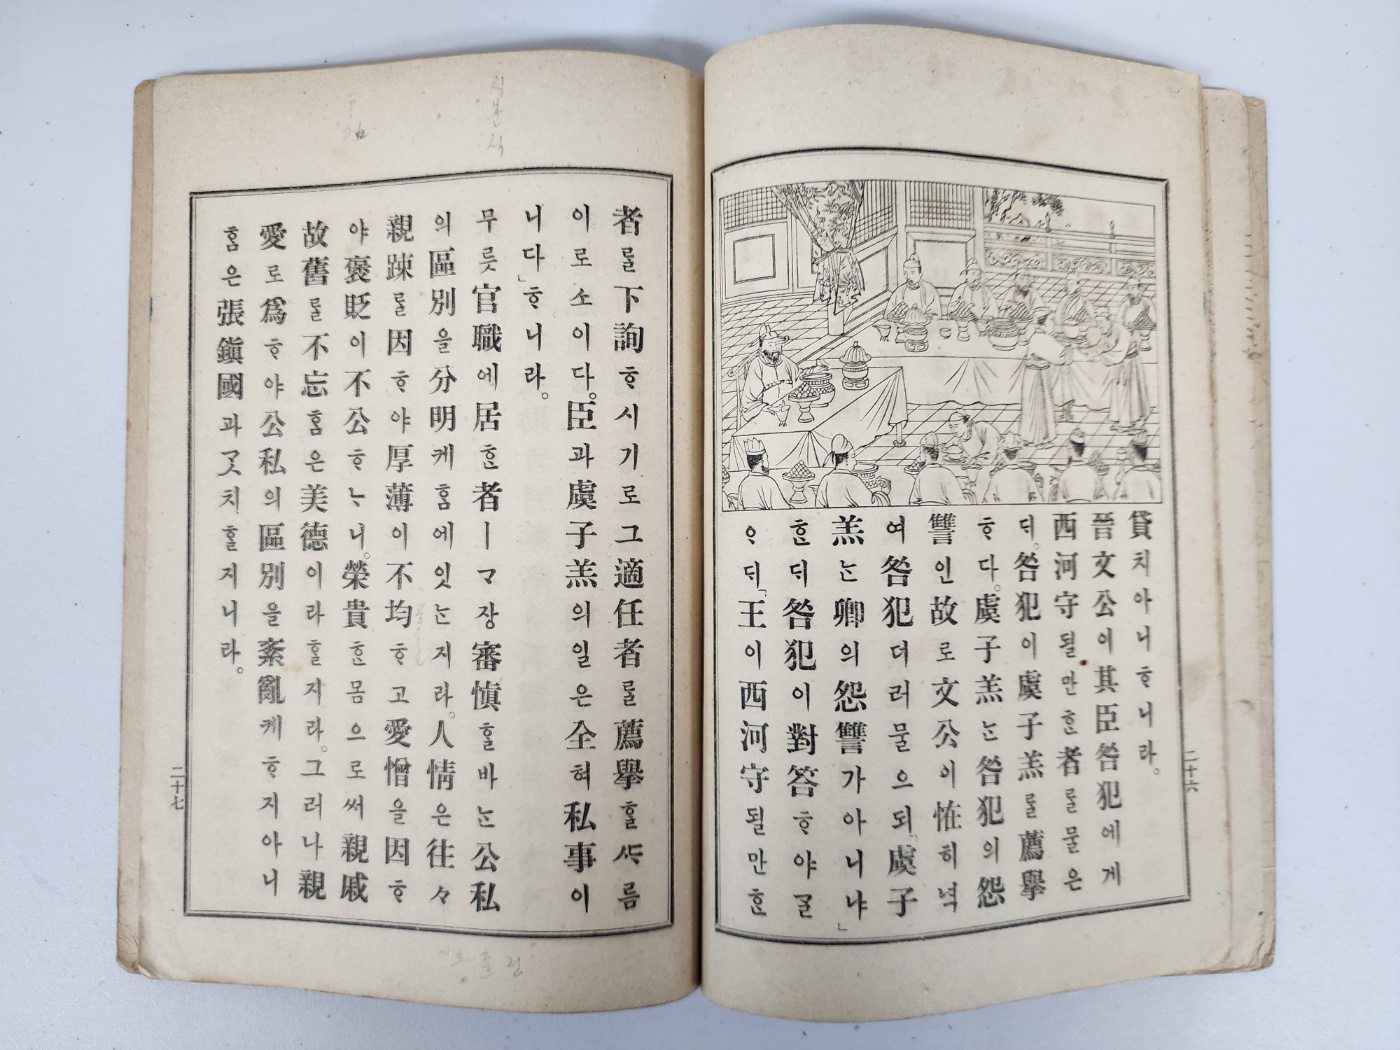 貸치아니ᄒᆞ니라。
晉文公이其臣咎犯에게
西河守될만ᄒᆞᆫ者ᄅᆞᆯ물은
ᄃᆡ。咎犯이虞子羔ᄅᆞᆯ薦擧
ᄒᆞ다。虞子羔ᄂᆞᆫ咎犯의怨
讐인故로文公이怪히녁
여咎犯더러물으되「虞子
羔ᄂᆞᆫ卿의怨讐가아니냐」
ᄒᆞᆫᄃᆡ咎犯이對答ᄒᆞ야ᄀᆞᆯ
ᄋᆞᄃᆡ「王이西河守될만ᄒᆞᆫ
二十六
者ᄅᆞᆯ下詢ᄒᆞ시기로그適任者ᄅᆞᆯ薦擧ᄒᆞᆯᄯᆞ름
이로소이다。臣과虞子羔의일은全혀私事이
니다」ᄒᆞ니라。
무릇官職에居ᄒᆞᆫ者ㅣᄀᆞ장審愼ᄒᆞᆯ바ᄂᆞᆫ公私
의區別을分明케ᄒᆞᆷ에잇ᄂᆞᆫ지라。人情은往々
親踈ᄅᆞᆯ因ᄒᆞ야厚薄이不均ᄒᆞ고愛憎을因ᄒᆞ
야褒貶이不公ᄒᆞᄂᆞ니。榮貴ᄒᆞᆫ몸으로써親戚
故舊ᄅᆞᆯ不忘ᄒᆞᆷ은美德이라ᄒᆞᆯ지라。그러나親
愛로爲ᄒᆞ야公私의區別을紊亂케ᄒᆞ지아니
ᄒᆞᆷ은張鎭國과ᄀᆞᆺ치ᄒᆞᆯ지니라。
二十七